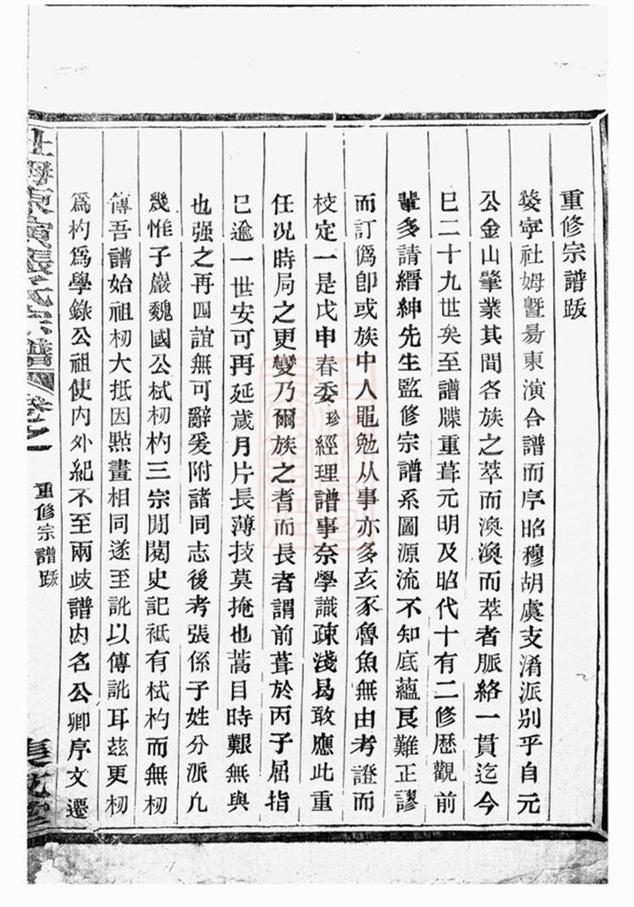 重修宗譜跋
婺寧社姆曁昜東演合譜而序昭穆胡虞支淆派別乎自元
公金山肇業其間各族之萃而渙渙而萃者脈絡一貫迄今
巳二十九世矣至譜牒重葺元明及昭代十有二修歷觀前
輩多請縉紳先生監修宗譜系圖源流不知底蘊良難正謬
而訂僞卽或族中人黽勉从事亦多亥豕魯魚無由考證而
校定一是戊申春委珍經理譜事奈學識疎淺曷敢應此重
任况時局之更變乃爾族之耆而長者謂前葺於丙子屈指
巳逾一世安可再延歲月片長薄技莫掩也蒿目時艱無與
也强之再四誼無可辭爰附諸同志後考張係子姓分派凢
幾惟子嚴魏國公栻栩杓三宗閱閱史記祇有栻杓而無栩
傳吾譜始祖栩大抵因㸃畫相同遂至訛以傳訛耳茲更栩
爲杓爲學錄公祖使内外紀不至兩歧譜内名公卿序文遷
東演張氏宗譜
卷之一
重修宗譜跋